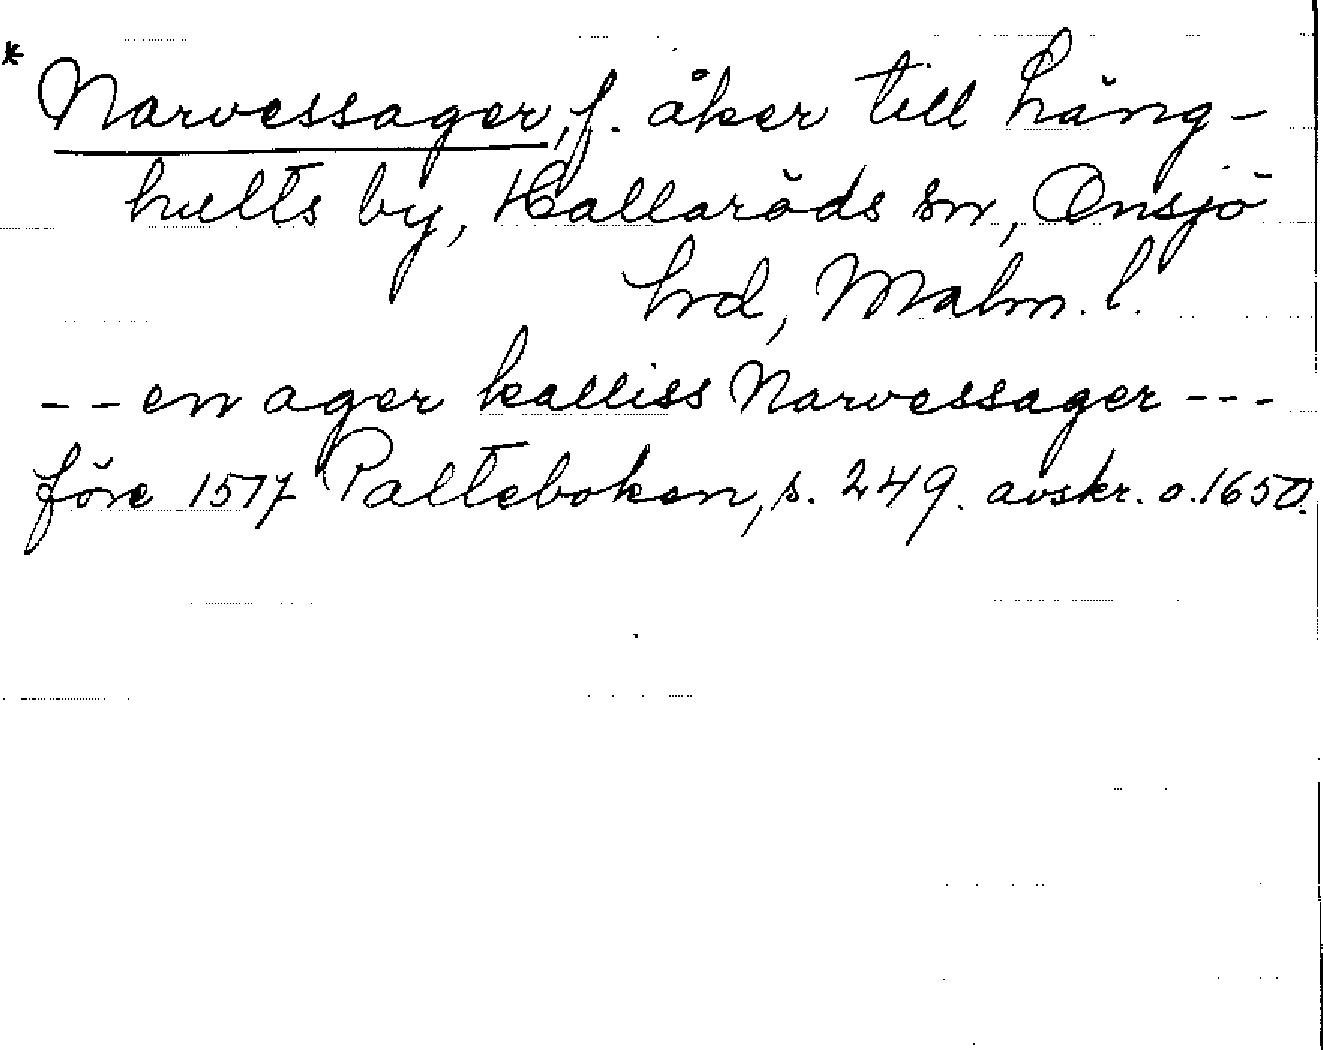 * Narvessager, f. åker till häng-
hults by, Hallaröds sn, Onsjö
hrd, Malm. l.
-- en ager kalliss Narvessager ---
före 1517 Palteboken, s. 249. avskr. o. 1650.